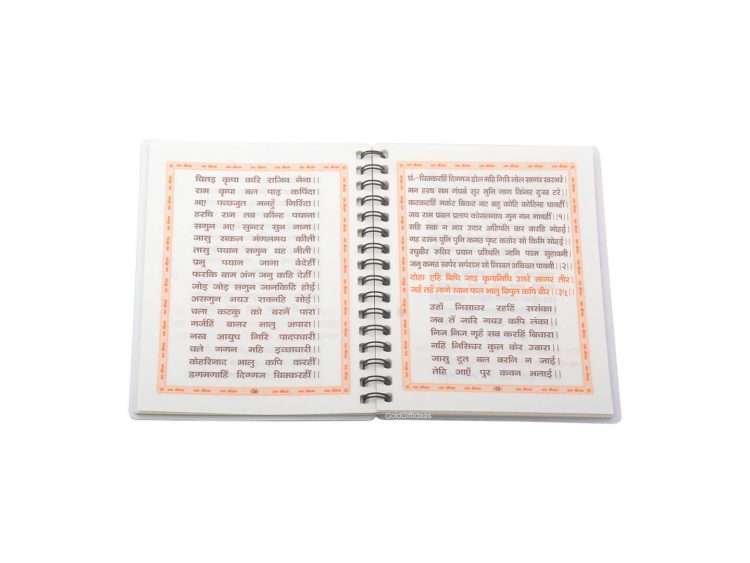 चितइ कृपा करि राजिव नैना।।
राम कृपा बल पाइ कपिंदा
भए पच्छजुत मनहुँ गिरिंदा
हरषि राम तब कीन्ह पयाना
सगुन भए सुन्दर सुभ नाना।
जासु सकल मंगलमय कीती
तासु पयान सगुन यह नीती
प्रभु पयान जाना बैदेहीं
फरकि बाम अंग जनु कहि देहीं
जोइ जोइ सगुन जानकिहि होई
असगुन भयउ रावनहि सोई।
चला कटकु को बरनैं पारा
गर्जहिं बानर भालु अपारा।
नख आयुध गिरि पादपधारी
चले गगन महि इच्छाचारी
केहरिनाद भालु कपि करहीं
डगमगाहिं दिग्गज चिक्करहीं
छं.-चिक्करहिं दिग्गज डोल महि गिरि लोल सागर खरभरे।
मन हरष सभ गंधर्ब सुर मुनि नाग किंनर दुख टरे।
कटकटहिं मर्कट बिकट भट बहु कोटि कोटिन्ह धावहीं
जय राम प्रबल प्रताप कोसलनाथ गुन गन गावहीं।।१।।
सहि सक न भार उदार अहिपति बार बारहिं मोहई।
गह दसन पुनि पुनि कमठ पृष्ट कठोर सो किमि सोहई।
रघुबीर रुचिर प्रयान प्रस्थिति जानि परम सुहावनी
जनु कमठ खर्पर सर्पराज सो लिखत अबिचल पावनी।।२।।
दोहा एहि बिधि जाइ कृपानिधि उतरे सागर तीर
जहँ तहँ लागे खान फल भालु बिपुल कपि बीर।।३५।।
उहाँ निसाचर रहहिं ससंका।
जब तें जारि गयउ कपि लंका।
निज निज गृहँ सब करहिं बिचारा
नहिं निसिचर कुल केर उबारा।
जासु दूत बल बरनि न जाई।
तेहि आएँ पुर कवन भलाई।
GoldGiftIdeas